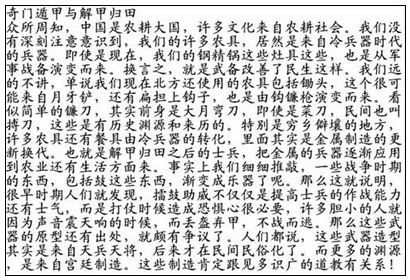 奇门遁甲与解甲归田
众所周知，中国是农耕大国，许多文化来自农耕社会。我们没
有深刻注意意识到，我们的许多农具，居然是来自冷兵器时代
的兵器。即使是现在，我们的钢精锅这些灶具这些，也是从军
事战备演变而来。换言之，就是武备改善了民生这样。我们远
的不讲，单说我们现在北方还使用的农具包括锄头，这个很可
能来自月牙铲，还有扁担上钩子，也是由钩镰枪演变而来。看
似简单的镰刀，其实前身是大月弯刀，即使是菜刀，民间也叫
搏刀，这些是有历史渊源和来历的。特别是穷乡僻壤的地方，
许多农具还有餐具由冷兵器的转化，里面其实是金属制造的更
新换代。也就是解甲归田之后的士兵，把金属的兵器逐渐应用
到农业还有生活方面来。事实上我们细细推敲，一些战争时期
的东西，包括鼓这些东西，渐变成乐器了呢。那么这就说明，
很早时期人们就发现，擂鼓助威不仅仅是提高士兵的作战能力
还有士气，而是打仗时候造成恐惧心很必要，许多胆小的人就
因为声音震天响的时候，而丢盔弃甲，不战而逃。那么这些武
器的原型还有出处，就颇有争议了。人们都说，这些武器造型
其实是来自天兵天将，后来才在民间民俗化了。而更多的渊源
，是来自宫廷制造。这些制造肯定跟见多识广的道教有关系！